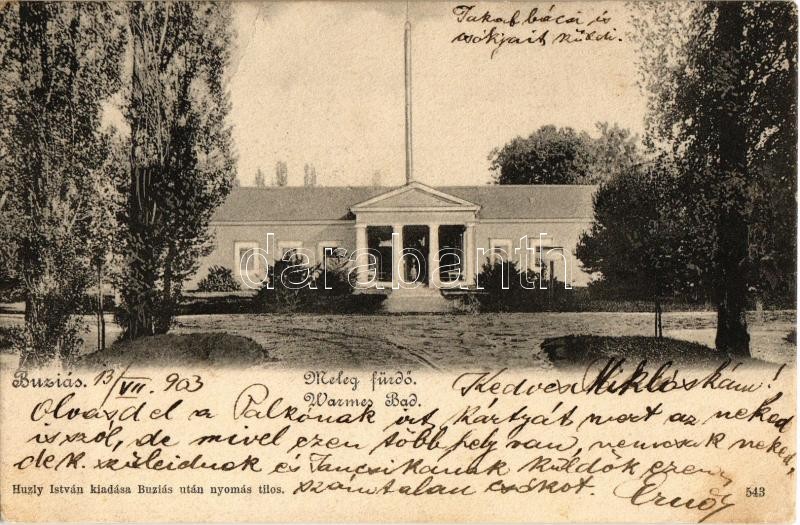 Jakab bácsi is
csókjait küldi.
darabanth.com
Buziás. 13/VII. 903
Meleg fürdő.
Warmes Bad.
Kedves Miklóskám!
Olvasd el a Palkónak írt kártyát mert az neked
is szól, de mivel ezen több hely van, nemcsak neked,
de k. szüleidnek és Jancsikának küldök ezen
számtalan csókot. Ernő
Huzly István kiadása Buziás után nyomás tilos.
543